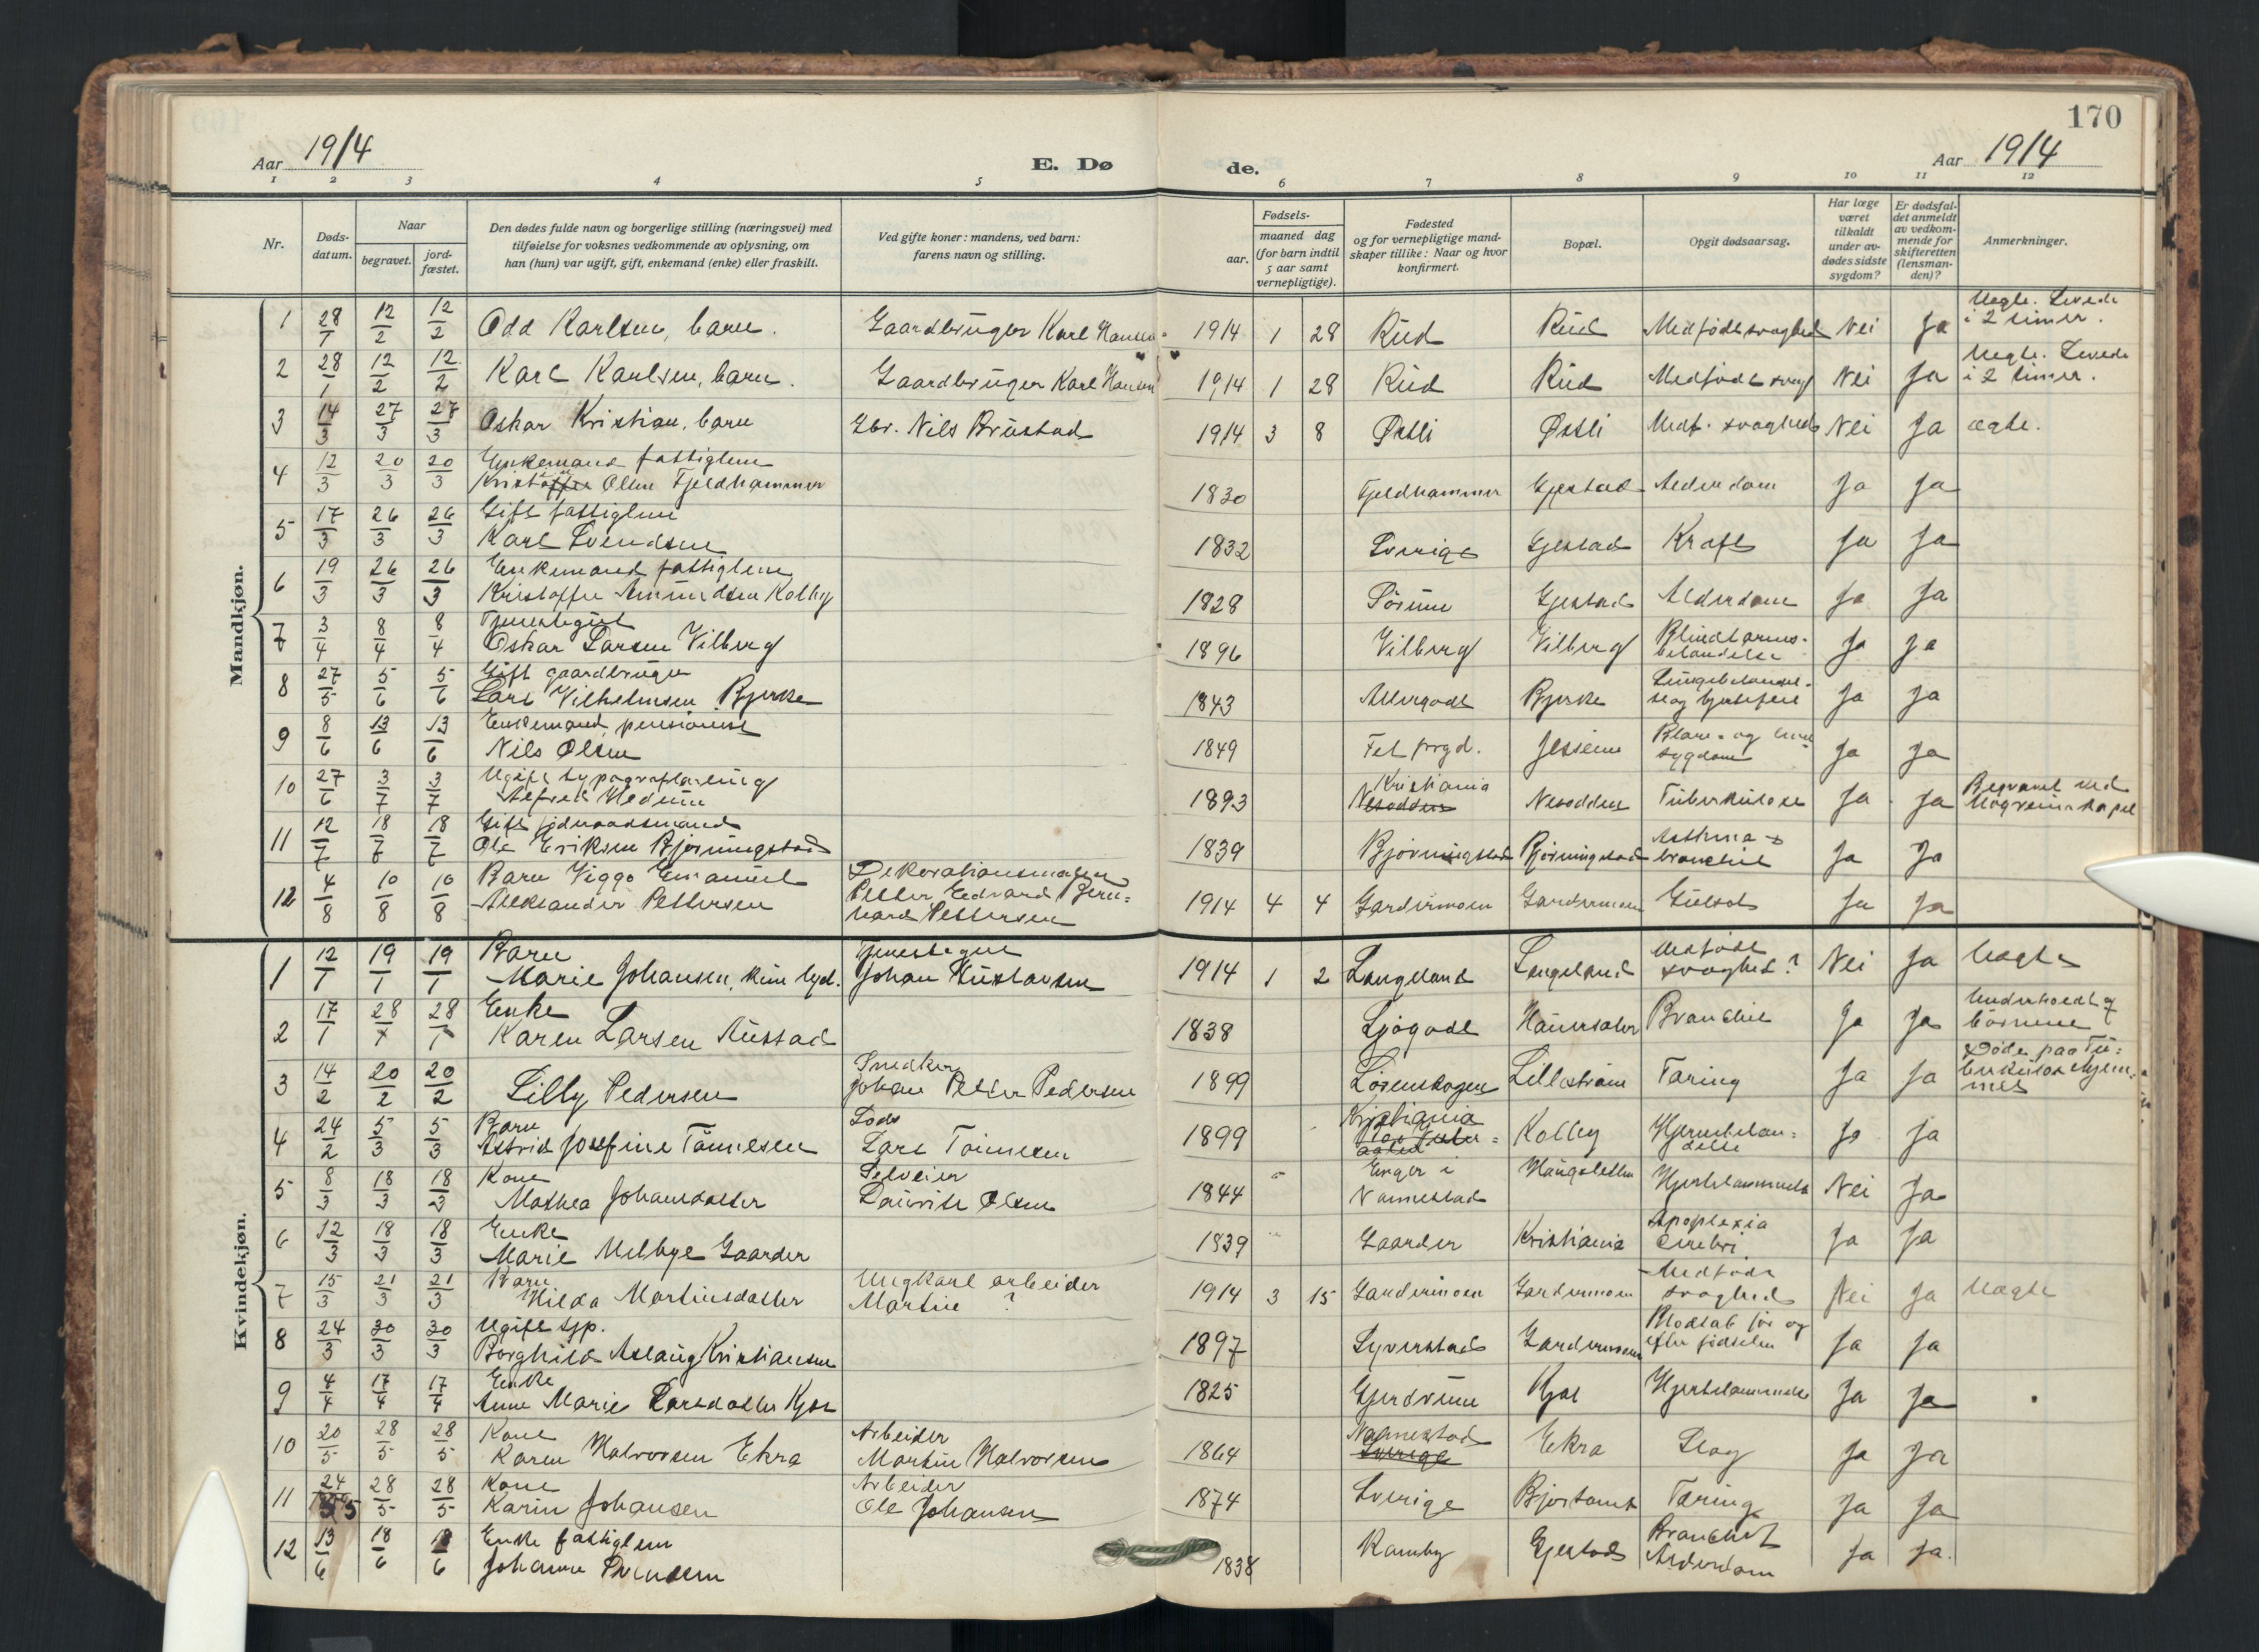 170
Aar 1914
E. Døde.
Aar 1914
1 2 3 4 5 6 7 8 9 10 11 12
Nr.
Døds-
datum.
Naar
begravet.
jord-
fæstet.
Den dødes fulde navn og borgerlige stilling (næringsvei) med
tilføielse for voksnes vedkommende av oplysning, om
han (hun) var ugift, gift, enkemand (enke) eller fraskilt.
Ved gifte koner: mandens, ved barn:
farens navn og stilling.
Fødsels-
aar.
maaned dag
(for barn indtil
5 aar samt
vernepligtige).
Fødested
og for vernepligtige mand-
skaper tillike: Naar og hvor
konfirmert.
Bopæl.
Opgit dødsaarsag.
Har læge
været
tilkaldt
under av-
dødes sidste
sygdom?
Er dødsfal-
det anmeldt
av vedkom-
mende for
skifteretten
(lensman-
den)?
Anmerkninger.
Mandkjøn.
1 28/1 12/2 12/2 Odd Karlsen, barn. Gaardbruger Karl Hansen 1914 1 28 Rud Rud Medfødt svaghed Nei Ja Uegte. Levede
i 2 timer.
2 28/1 12/2 12/2 Karl Karlsen, barn. Gaardbruger Karl Hansen 1914 1 28 Rud Rud Medfødt svagh Nei Ja Uegte. Levede
i 2 timer.
3 14/3 27/3 27/3 Oskar Kristian, barn Gbr. Nils Brustad 1914 3 8 Østli Østli Medf. svaghed Nei Ja ægte.
4 12/3 20/3 20/3 Enkemand fattiglem
Kristoffer Olsen Fjeldhammer 1830 Fjeldhammer Gjestad Alderdom Ja Ja
5 17/3 26/3 26/3 Gift fattiglem
Karl Svendsen 1832 Sverige Gjestad Kræft Ja Ja
6 19/3 26/3 26/3 Enkemand fattiglem
Kristoffer Amundsen Kolby 1828 Sørum Gjestad Alderdom Ja Ja
7 3/4 8/4 8/4 Tjenestegut
Oskar Larsen Vilberg 1896 Vilberg Vilberg Blindtarms-
betændelse Ja Ja
8 27/5 5/6 5/6 Gift gaardbruger
Lars Vilhelmsen Bjerke 1843 Allergodt Bjerke Lungebetændel-
se og hjertefeil Ja Ja
9 8/6 13/6 13/6 Enkemand, pensionist
Nils Olsen 1849 Fet prgd. Jessum Blære- og
sygdom Ja Ja
10 27/6 3/7 3/7 Ugift typograflærling
Alfred Hedum 1893 Kristiania
Nesodden Nesodden Tuberkulose Ja Ja Begravet ved
Ungreinskapel
11 12/7 18/7 18/7 Gift jordmandsmand
Ole Eriksen Bjørningstad 1839 Bjørningstad Bjørningstad Asthma
bronchit Ja Ja
12 4/8 10/8 10/8 Barn Viggo Emanuel
Aleksander Pettersen Dekorationsmaler
Petter Edvard Bern=
hard Pettersen 1914 4 4 Gardermoen Gardermoen Gulsot Ja Ja
Kvindekjøn.
1 12/1 19/1 19/1 Barn
Marie Johansen, Tjenestegut
Johan Gustavsen 1914 1 2 Langeland Langeland Medfødt
svaghed? Nei Ja Uegte
2 17/1 28/1 28/1 Enke
Karen Larsen Austad 1838 Ljøgodt Hauersæter Bronchit Ja Ja Underholdt af
børnene
3 14/2 20/2 20/2 Lilly Pedersen Snedker
Johan Petter Pedersen 1899 Lørenskogen Lillestrøm Tæring Ja Ja Døde paa Tu=
berkulosehjem=
met
4 24/2 5/3 5/3 Barn
Astrid Josefine Tønnesen Lods
Lars Tønnesen 1899 Kristiania Kolby Hjernebetæn=
delse Ja Ja
5 8/3 18/3 18/3 Kone
Mathea Johansdatter Selveier
Laurits Olsen 1844 Enger i
Nannestad Haugsletten Hjertelammelse Nei Ja
6 12/3 18/3 18/3 Enke
Marie Melbye Gaarder 1839 Gaarder Kristiania Apoplexia
cerebri. Ja Ja
7 15/3 21/3 21/3 Barn
Hilda Martinsdatter Ungkarl arbeider
Martin ? 1914 3 15 Gardermoen Gardermoen Medfødt
svaghed Nei Ja Uegte
8 24/3 30/3 30/3 Ugift tjp.
Borghild Aslaug Kristiansen 1897 Syverstad Gardermoen Blodtab før og
efter fødselen Ja Ja
9 4/4 17/4 17/4 Enke
Anne Marie Larsdatter Kjos 1825 Gjerdrum Kjos Hjertelammelse Ja Ja
10 20/5 28/5 28/5 Kone
Karen Halvorsen Ekra Arbeider
Martin Halvorsen 1864 Nannestad
Sverige Ekra Slag Ja Ja
11 24/5 28/5 28/5 Kone
Karin Johansen Arbeider
Ole Johansen 1874 Sverige Bjørtomt Tæring Ja Ja
12 13/6 18/6 18/6 Enke fattiglem
Johanne Svendsen 1838 Ramby Gjestad Bronchit
Alderdom Ja Ja.